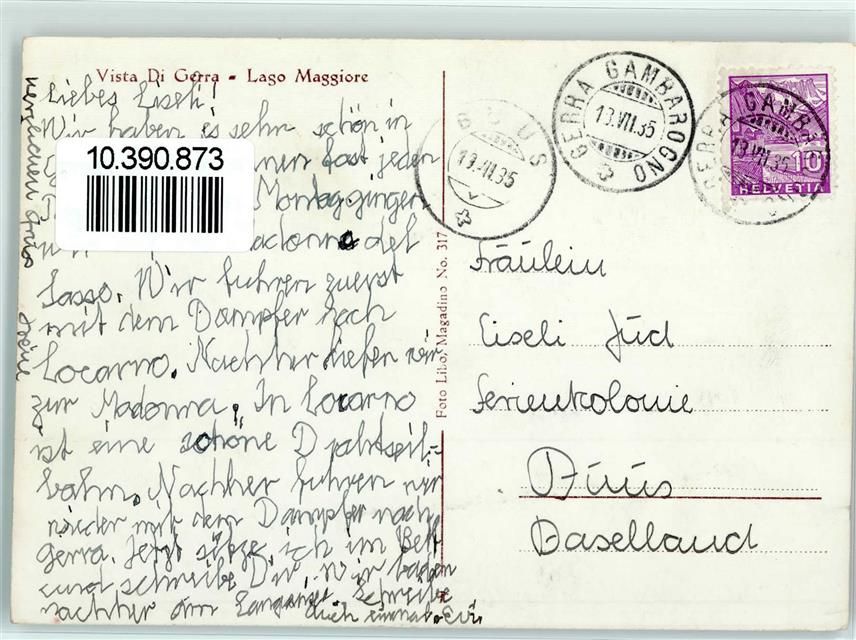 Vista Di Gerra - Lago Maggiore
Liebes Liseli!
Wir haben es sehr schön in
10.390.873
fast jeden
Montag gingen
Madonna del
Sasso. Wir fuhren zuerst
mit dem Dampfer nach
Locarno. Nachher liefen wir
zur Madonna. In Locarno
ist eine schöne Drahtseil-
bahn. Nachher fuhren wir
wieder mit dem Dampfer nach
Gerra. Jetzt sitze ich im Bett
und schreibe Dir. Wir baden
nachher am Schreibe
auch einmal.
Foto Libo, Magadino No. 317
BUUS
19.VII.35
GERRA GAMBAROGNO
13.VII.35
GERRA GAMBAROGNO
13.VII.35
10
HELVETIA
Fräulein
Liseli Jud
Ferienkolonie
Buus
Baselland